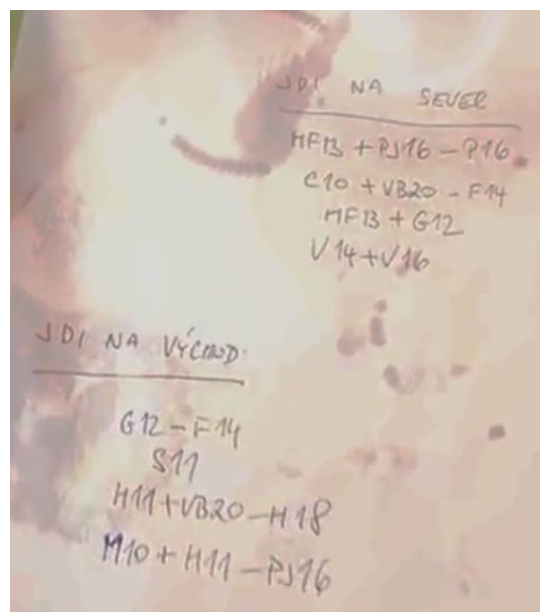 JDI NA SEVER
MF13 + PJ16 - P16
C10 + VB20 - F14
MF13 + G12
V14 + V16
JDI NA VÝCHOD
G12 - F14
S11
H11 + VB20 - H18
M10 + H11 - PJ16